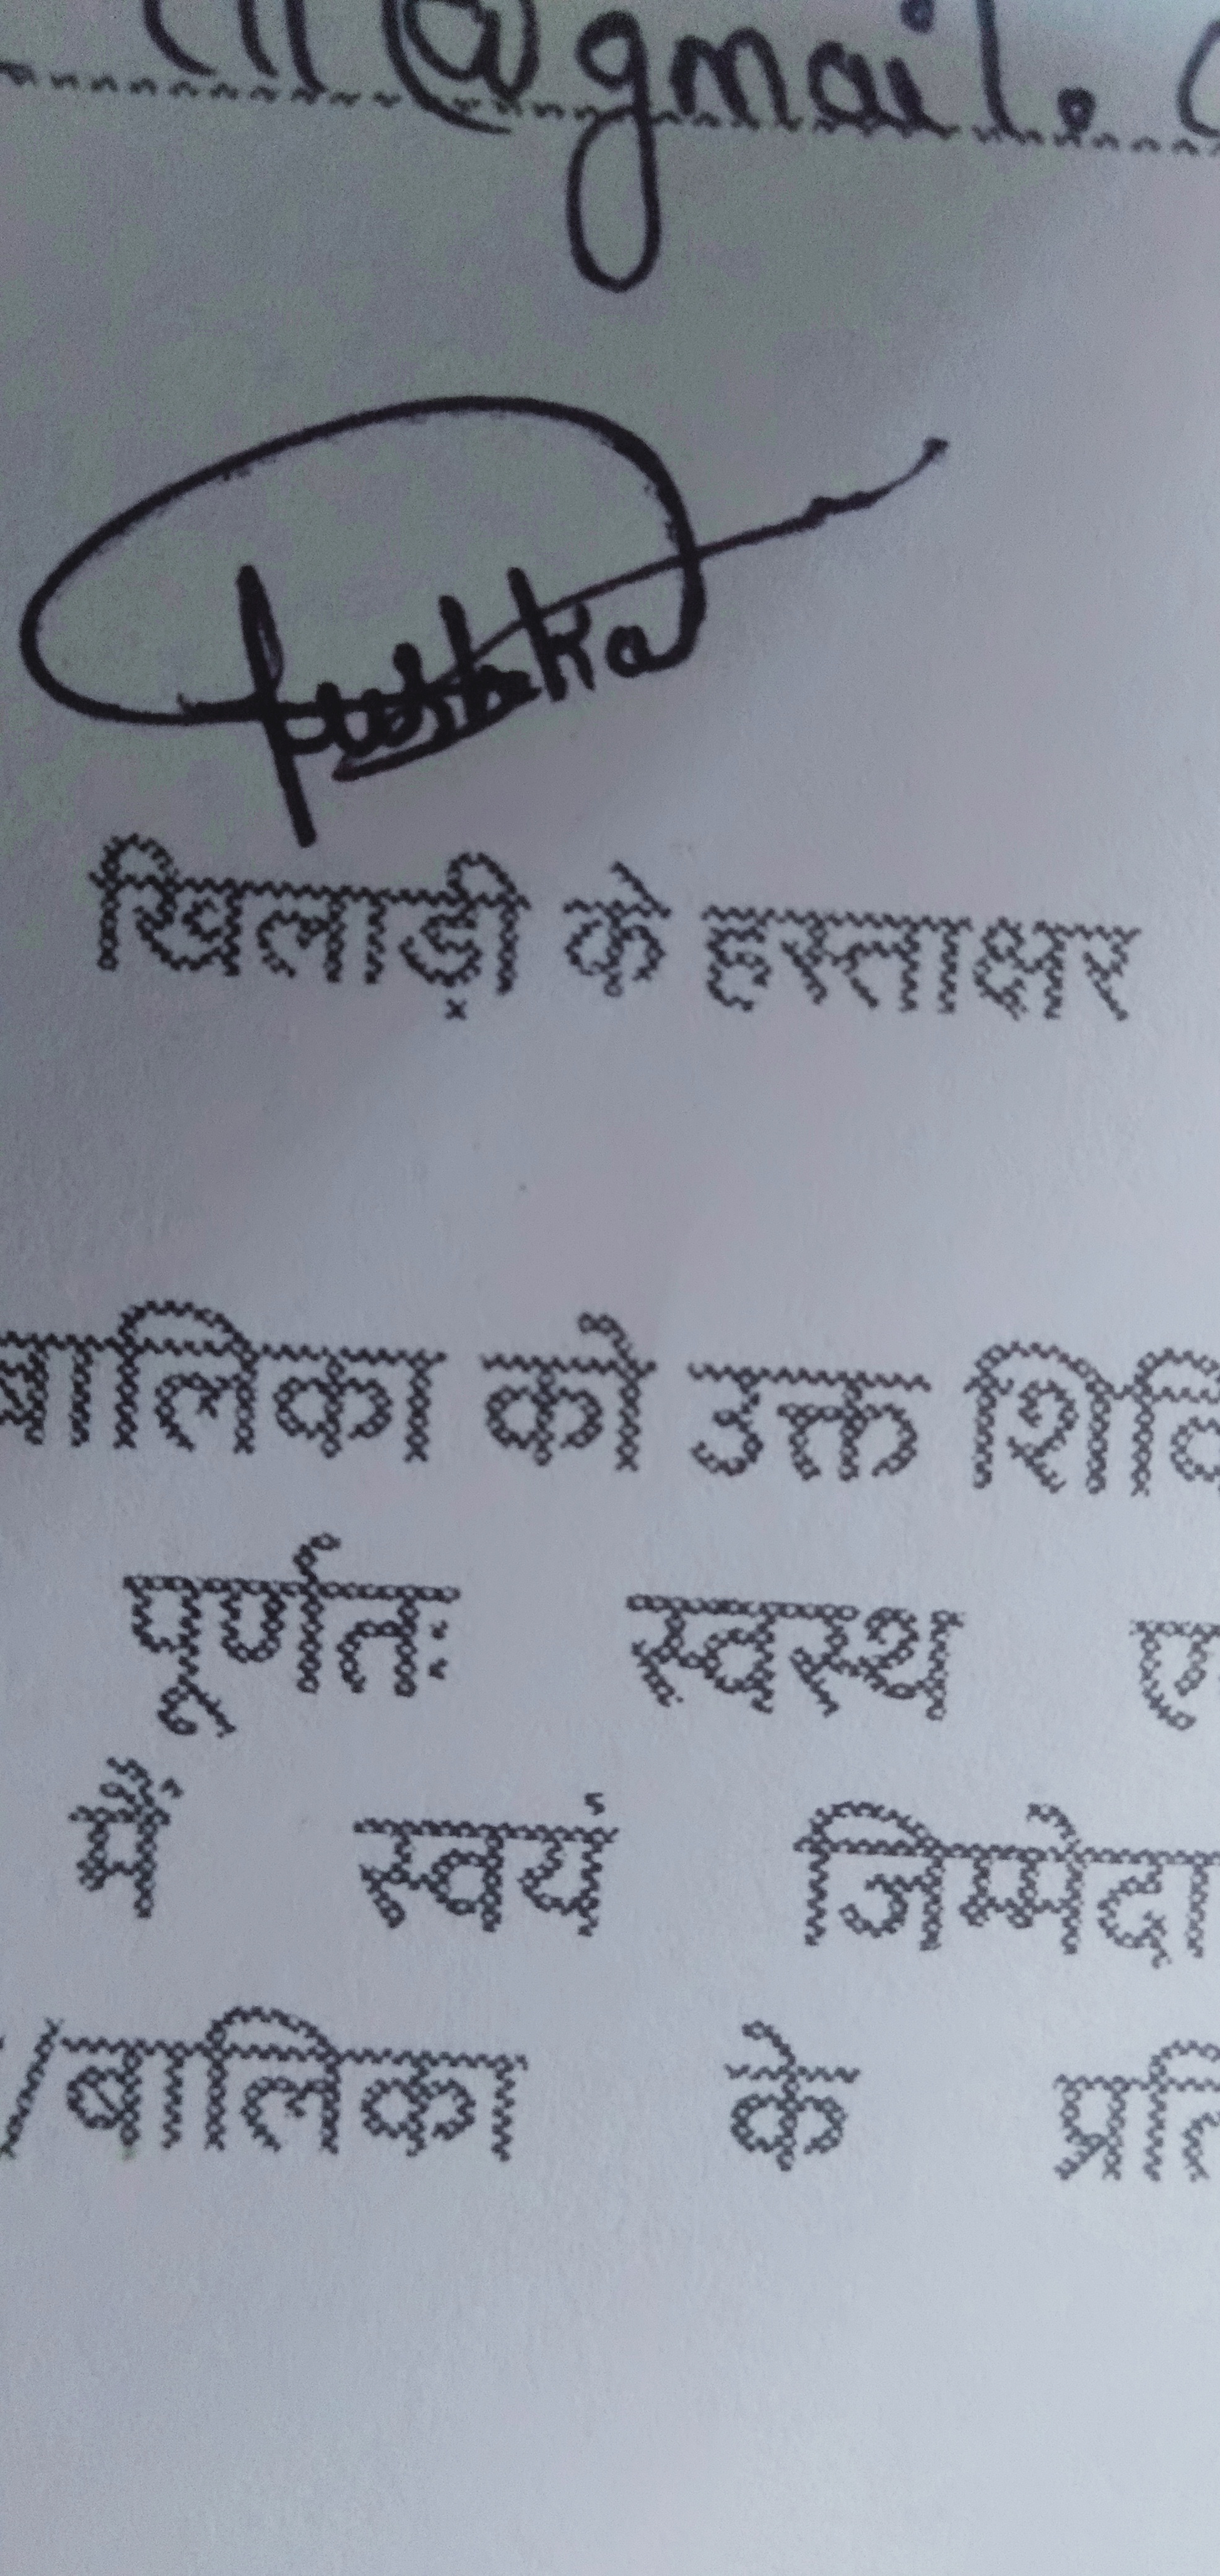 @gmail.
खिलाड़ी के हस्ताक्षर
बालिका को उक्त शिवि
पूर्णतः स्वस्थ ए
मैं स्वयं जिम्मेदा
/बालिका के प्रति